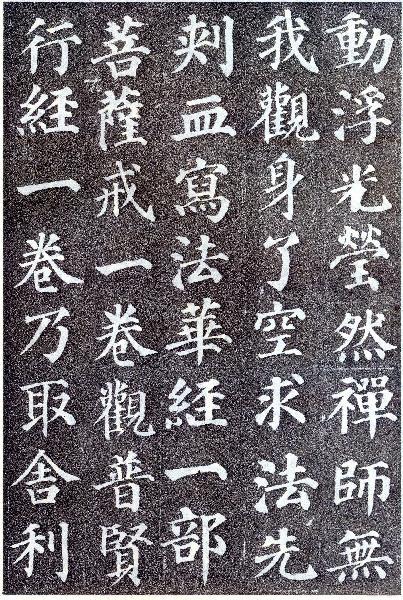 動浮光瑩然禪師無
我觀身了空求法先
刺血寫法華經一部
菩薩戒一卷觀普賢
行經一卷乃取舍利